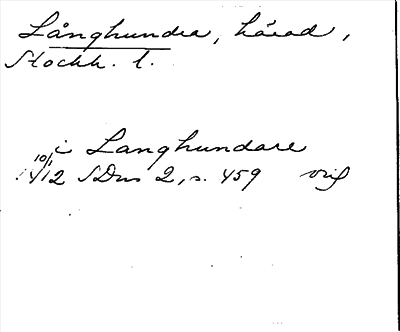 Långhundra, härad,
Stockh. l.
i Langhundare
10/1 1412 SDns 2, s. 459 orig